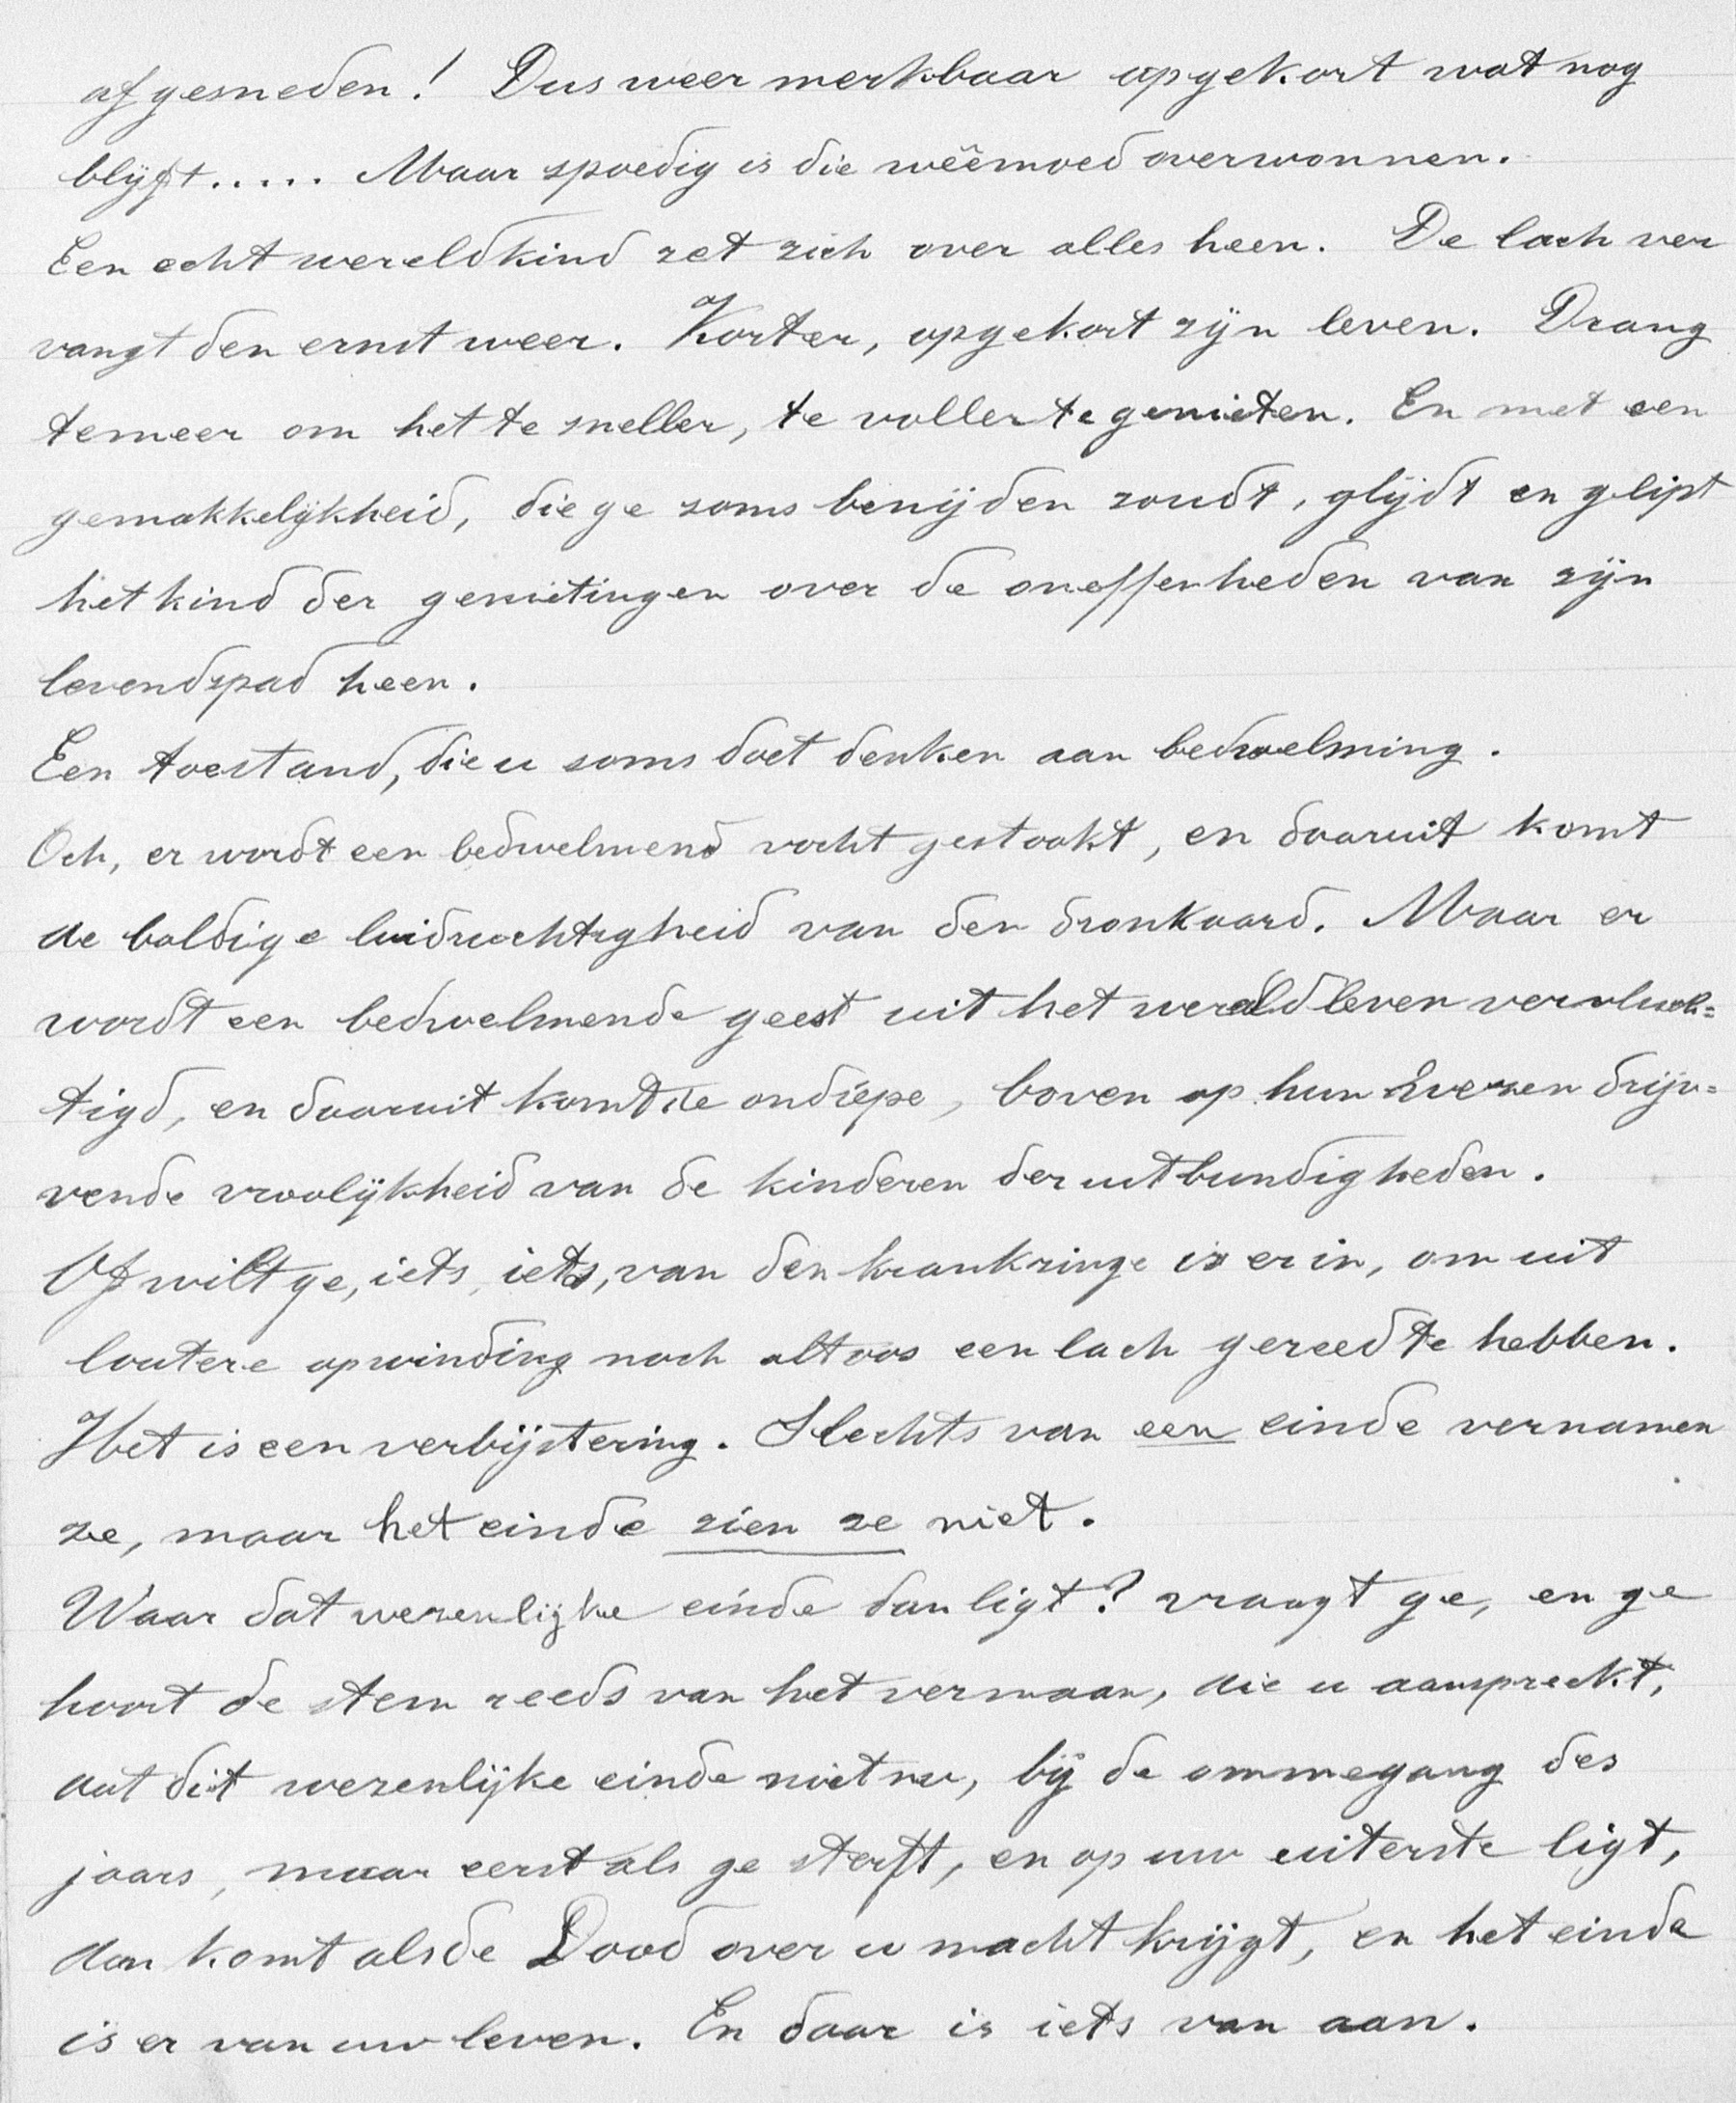 afgesneden! Dus weer merkbaar opgekort wat nog
blijft..... Maar spoedig is die weêmoed overwonnen.
Een echt wereldkind zet zich over alles heen. De lach ver
vangt den ernst weer. Korter, opgekort zijn leven. Drang
temeer om het te sneller, te voller te genieten. En met een
gemakkelijkheid, die ge soms benijden zoudt, glijdt en glipt
het kind der genietingen over de oneffenheden van zijn
levendspad heen.
Een toestand, die u soms doet denken aan bedwelming.
Och, er wordt een bedwelmend vocht gestookt, en daaruit komt
de baldige luidruchtigheid van den dronkaard. Maar er
wordt een bedwelmende geest uit het wereldleven vervluch=
tigd, en daaruit komt de ondiepe, boven op hun wezen drij=
vende vroolijkheid van de kinderen der uitbundigheden.
Of wilt ge, iets, iets, van den krankzinge is er in, om uit
loutere opwinding noch altoos een lach gereed te hebben.
Het is een verbijstering. Slechts van een einde vernamen
ze, maar het einde zien ze niet.
Waar dat wezenlijke einde dan ligt? vraagt ge, en ge
hoort de stem reeds van het vermaan, die u aanspreekt,
dat dit wezenlijke einde niet nu, bij de ommegang des
jaars, maar eerst als ge sterft, en op uw uiterste ligt,
dan komt als de Dood over u macht krijgt, en het einde
is er van uw leven. En daar is iets van aan.